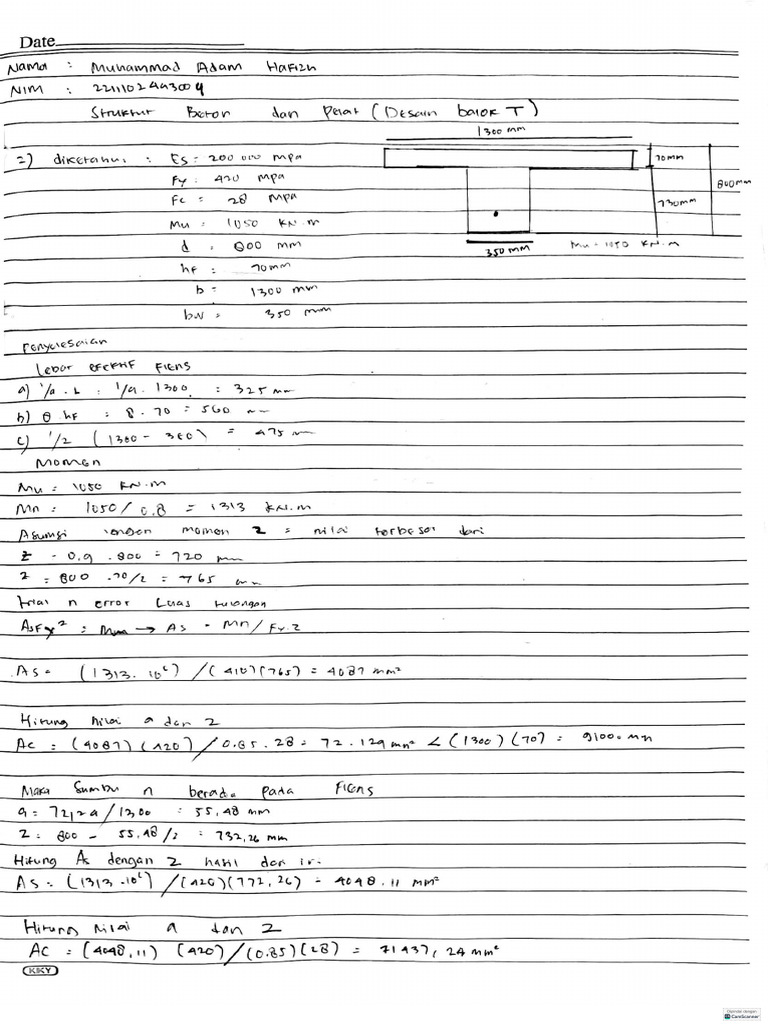 Date
Nama : Muhammad Adam Hafizh
NIM : 2211102443004
Struktur Beton dan Pelat (Desain balok T)
1300 mm
2) diketahui : Es = 200 000 mpa
70mm
Fy : 420 mpa
800mm
Fc = 28 mpa
730mm
Mu = 1050 KN.m
d = 800 mm
350 mm
Mu = 1050 KN.m
hf = 70mm
b = 1300 mm
bw = 350 mm
Penyelesaian
Lebar efektif Flens
a) 1/4 . L = 1/4 . 1300 = 325 mm
b) 8 hf = 8 . 70 = 560 mm
c) 1/2 (1300 - 350) = 475 m
Momen
Mu = 1050 KN.m
Mn = 1050/0.8 = 1313 KN.m
Asumsi lengan momen z = nilai terbesar dari
z = 0.9 . 800 = 720 mm
z = 800 - 70/2 = 765 mm
trial n error Luas tulangan
→ As = Mn / Fy.z
As = (1313. 10⁶) / (410)(765) = 4087 mm²
Hitung nilai a dan z
Ac = (4087)(420) / 0.85 . 28 = 72.129 mm² < (1300)(70) = 91000 mm
Maka Sumbu n berada pada Flens
a = 72,29 / 1300 = 55,48 mm
z = 800 - 55,48/2 = 732,26 mm
Hitung As dengan z hasil dari ir.
As = (1313 . 10⁶) / (420)(772,26) = 4048.11 mm²
Hitung Nilai a dan z
Ac = (4048,11) (420) / (0.85)(28) = 71437,24 mm²
KIKY
Dipindai dengan
CamScanner